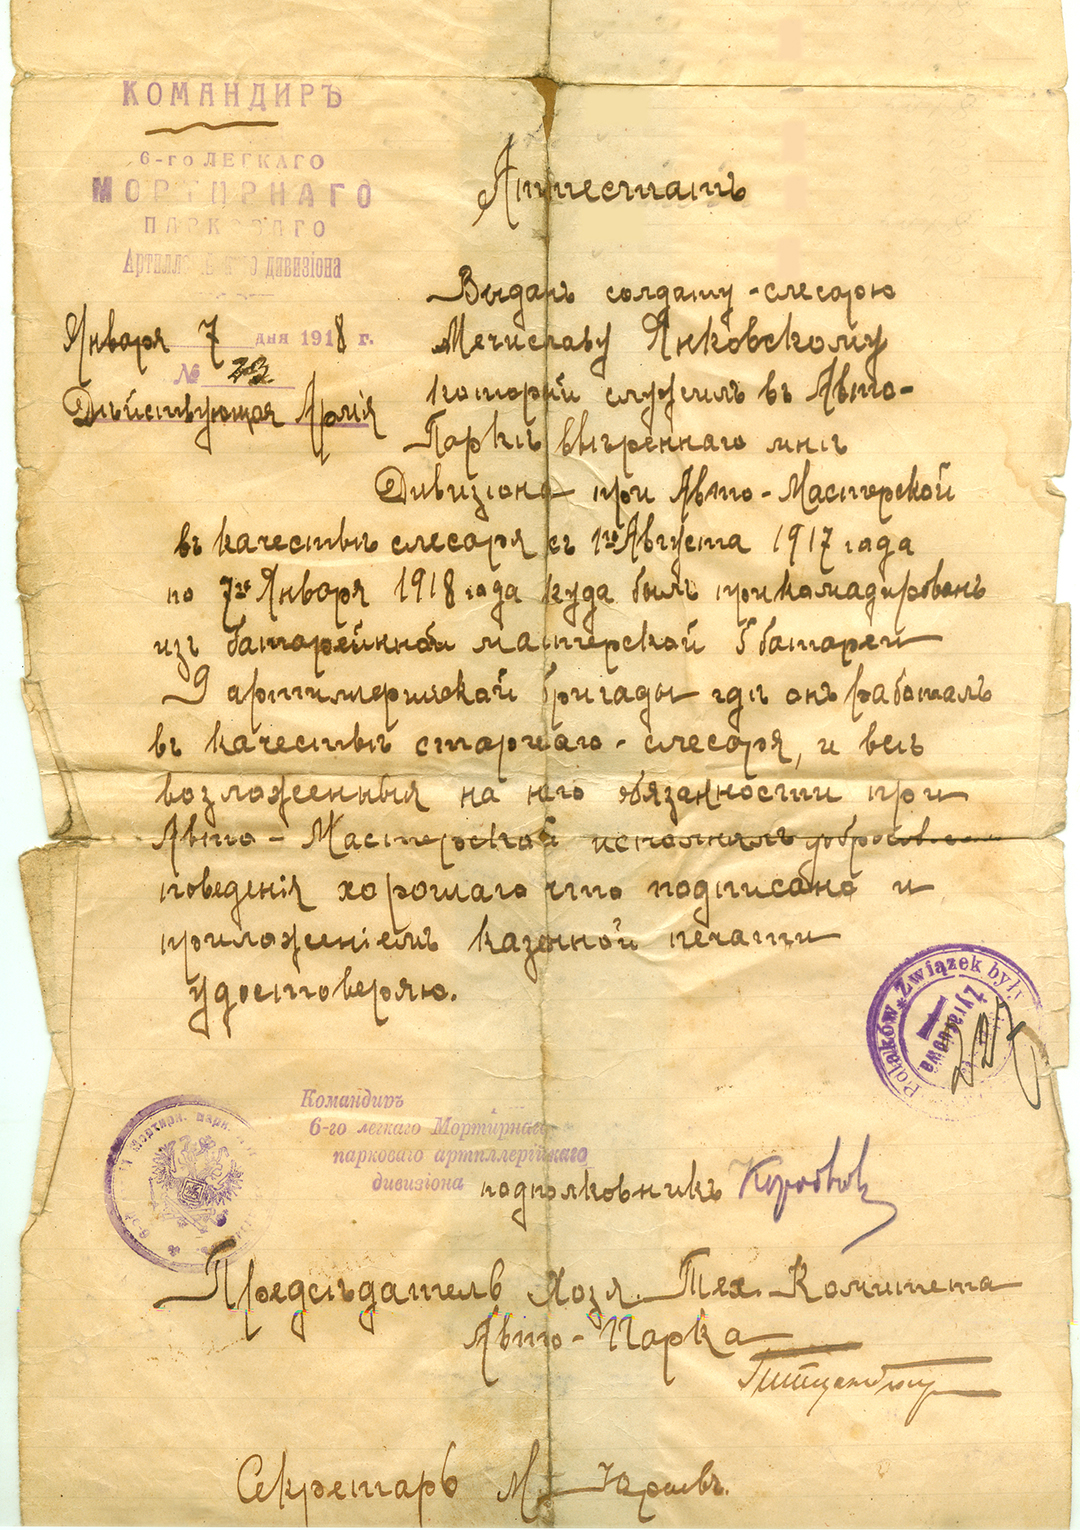 КОМАНДИРЪ
6-го ЛЕГКАГО
МОРТИРНАГО
ПАРКОВАГО
Артиллерійскаго дивизіона
Января 7 дня 1918 г.
№ 23.
Дѣйствующая Армія
Аттестатъ
Выданъ солдату-слесарю
Мечиславу Янковскому
который служилъ въ Авто-
Паркѣ ввѣреннаго мнѣ
Дивизіона при Авто-Мастерской
въ качествѣ слесаря съ 1го Августа 1917 года
по 7ое Января 1918 года куда былъ прикомадированъ
изъ батарейнной мастерской 6 батареи
9 артиллерійской бригады гдѣ онъ работал
въ качествѣ старшаго-слесаря, и всѣ
возложенныя на него обязанности при
Авто-Мастерской исполнялъ
поведенія хорошаго что подписано и
приложеніемъ казенной печати
удостоверяю.
Polaków Związek był
Żyrardowa
Мортирн. парк.
Командиръ
6-го легкаго Мортирнаго
парковаго артиллерійскаго
дивизіона подполковникъ
Предсѣдатель Хозя. Тех. Комитета
Авто-Парка
Секретарь М.